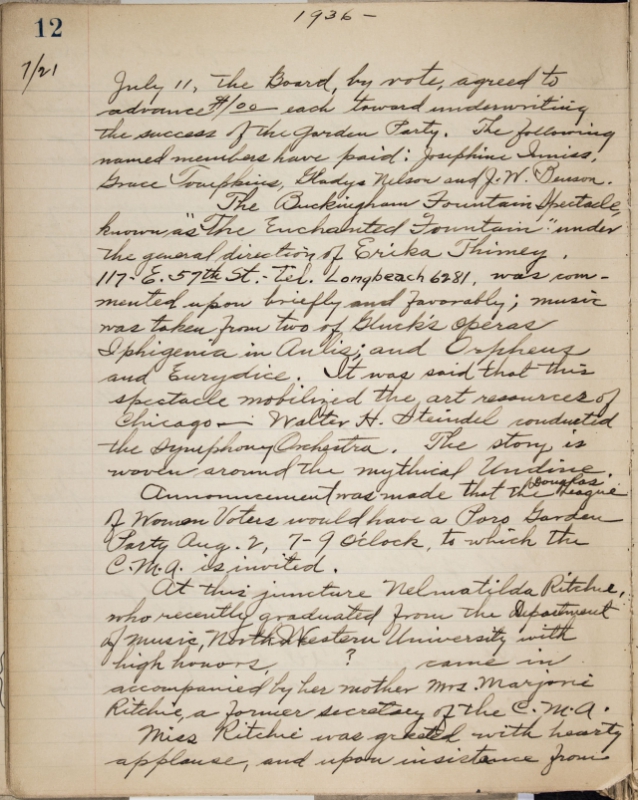 12
1936 -
7/21
July 11, the Board, by vote, agreed to
advance $1.00 each toward underwriting
the success of the Garden Party. The following
named members have paid: Josephine Inniss,
Grace Tompkins, Gladys Nelson and J. W. Benson.
The Buckingham Fountain Spectacle,
known as "The Enchanted Fountain" under
the general direction of Erika Thimey.
117-E. 57th St.- Tel. Longbeach 6281, was com-
mented upon briefly and favorably; music
was taken from two of Gluck's operas
Iphigenia in Aulis; and Orpheus
and Eurydice. It was said that this
spectacle mobilized the art resources of
Chicago - Walter H. Steindel conducted
the Symphony Orchestra. The story is
woven around the mythical Undine.
Announcement was made that the Douglas League
of Women Voters would have a Poro Garden
Party Aug. 2, 7-9 o'clock, to which the
C.M.A. is invited.
At this juncture Nelmatilda Ritchie,
who recently graduated from the Department
of Music, NorthWestern University with
high honors, ? came in
accompanied by her mother Mrs. Marjorie
Ritchie, a former secretary of the C.M.A.
Miss Ritchie was greeted with hearty
applause, and upon insistence from